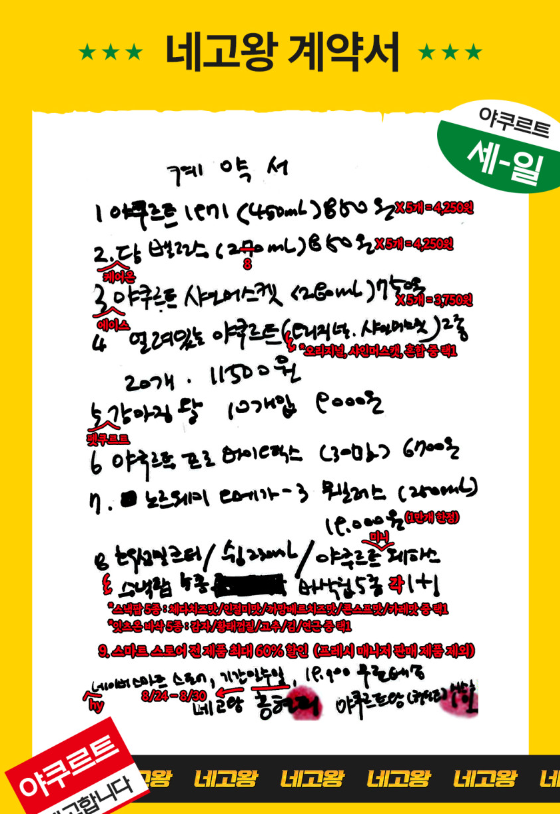 ★★★ 네고왕 계약서 ★★★
야쿠르트
세-일
계약서
1 야쿠르트 1번기 (450mL) 850원 X5개 = 4,250원
2. 당 밸런스 (270mL) 850원 X5개 = 4,250원
8
케어온
3 야쿠르트 샤인머스켓 (280mL) 750원
X5개 = 3,750원
에이스
4 얼려먹는 야쿠르트 (오리지널, 샤인머스켓) 2종
*오리지널, 샤인머스켓, 혼합 중 택1
20개 . 11500원
5 강아징 당 10개입 9000원
펫쿠르트
6 야쿠르트 프로바이오틱스 (30일) 6700원
7. 노르웨이 오메가-3 밸런스 (250mL)
19,000원 (1만개 한정)
미니
8 / 쉼 / 야쿠르트
스낵탐 5종 바삭칩 5종 각 1+1
*스낵탐 5종 : 체다치즈맛/인절미맛/까망베르치즈맛/콘스프맛/카페맛 중 택1
*잇츠온 바삭 5종 : 감자/황태껍질/고추/김/연근 중 택1
9. 스마트 스토어 전 제품 최대 60% 할인 (프레시 매니저 판매 제품 제외)
네이버 스마트 스토어, 기간 일주일, 19,900 무료배송
hy 8/24 – 8/30
네고왕 홍현희 야쿠르트
야쿠르트
네고합니다
네고왕 네고왕 네고왕 네고왕 네고왕